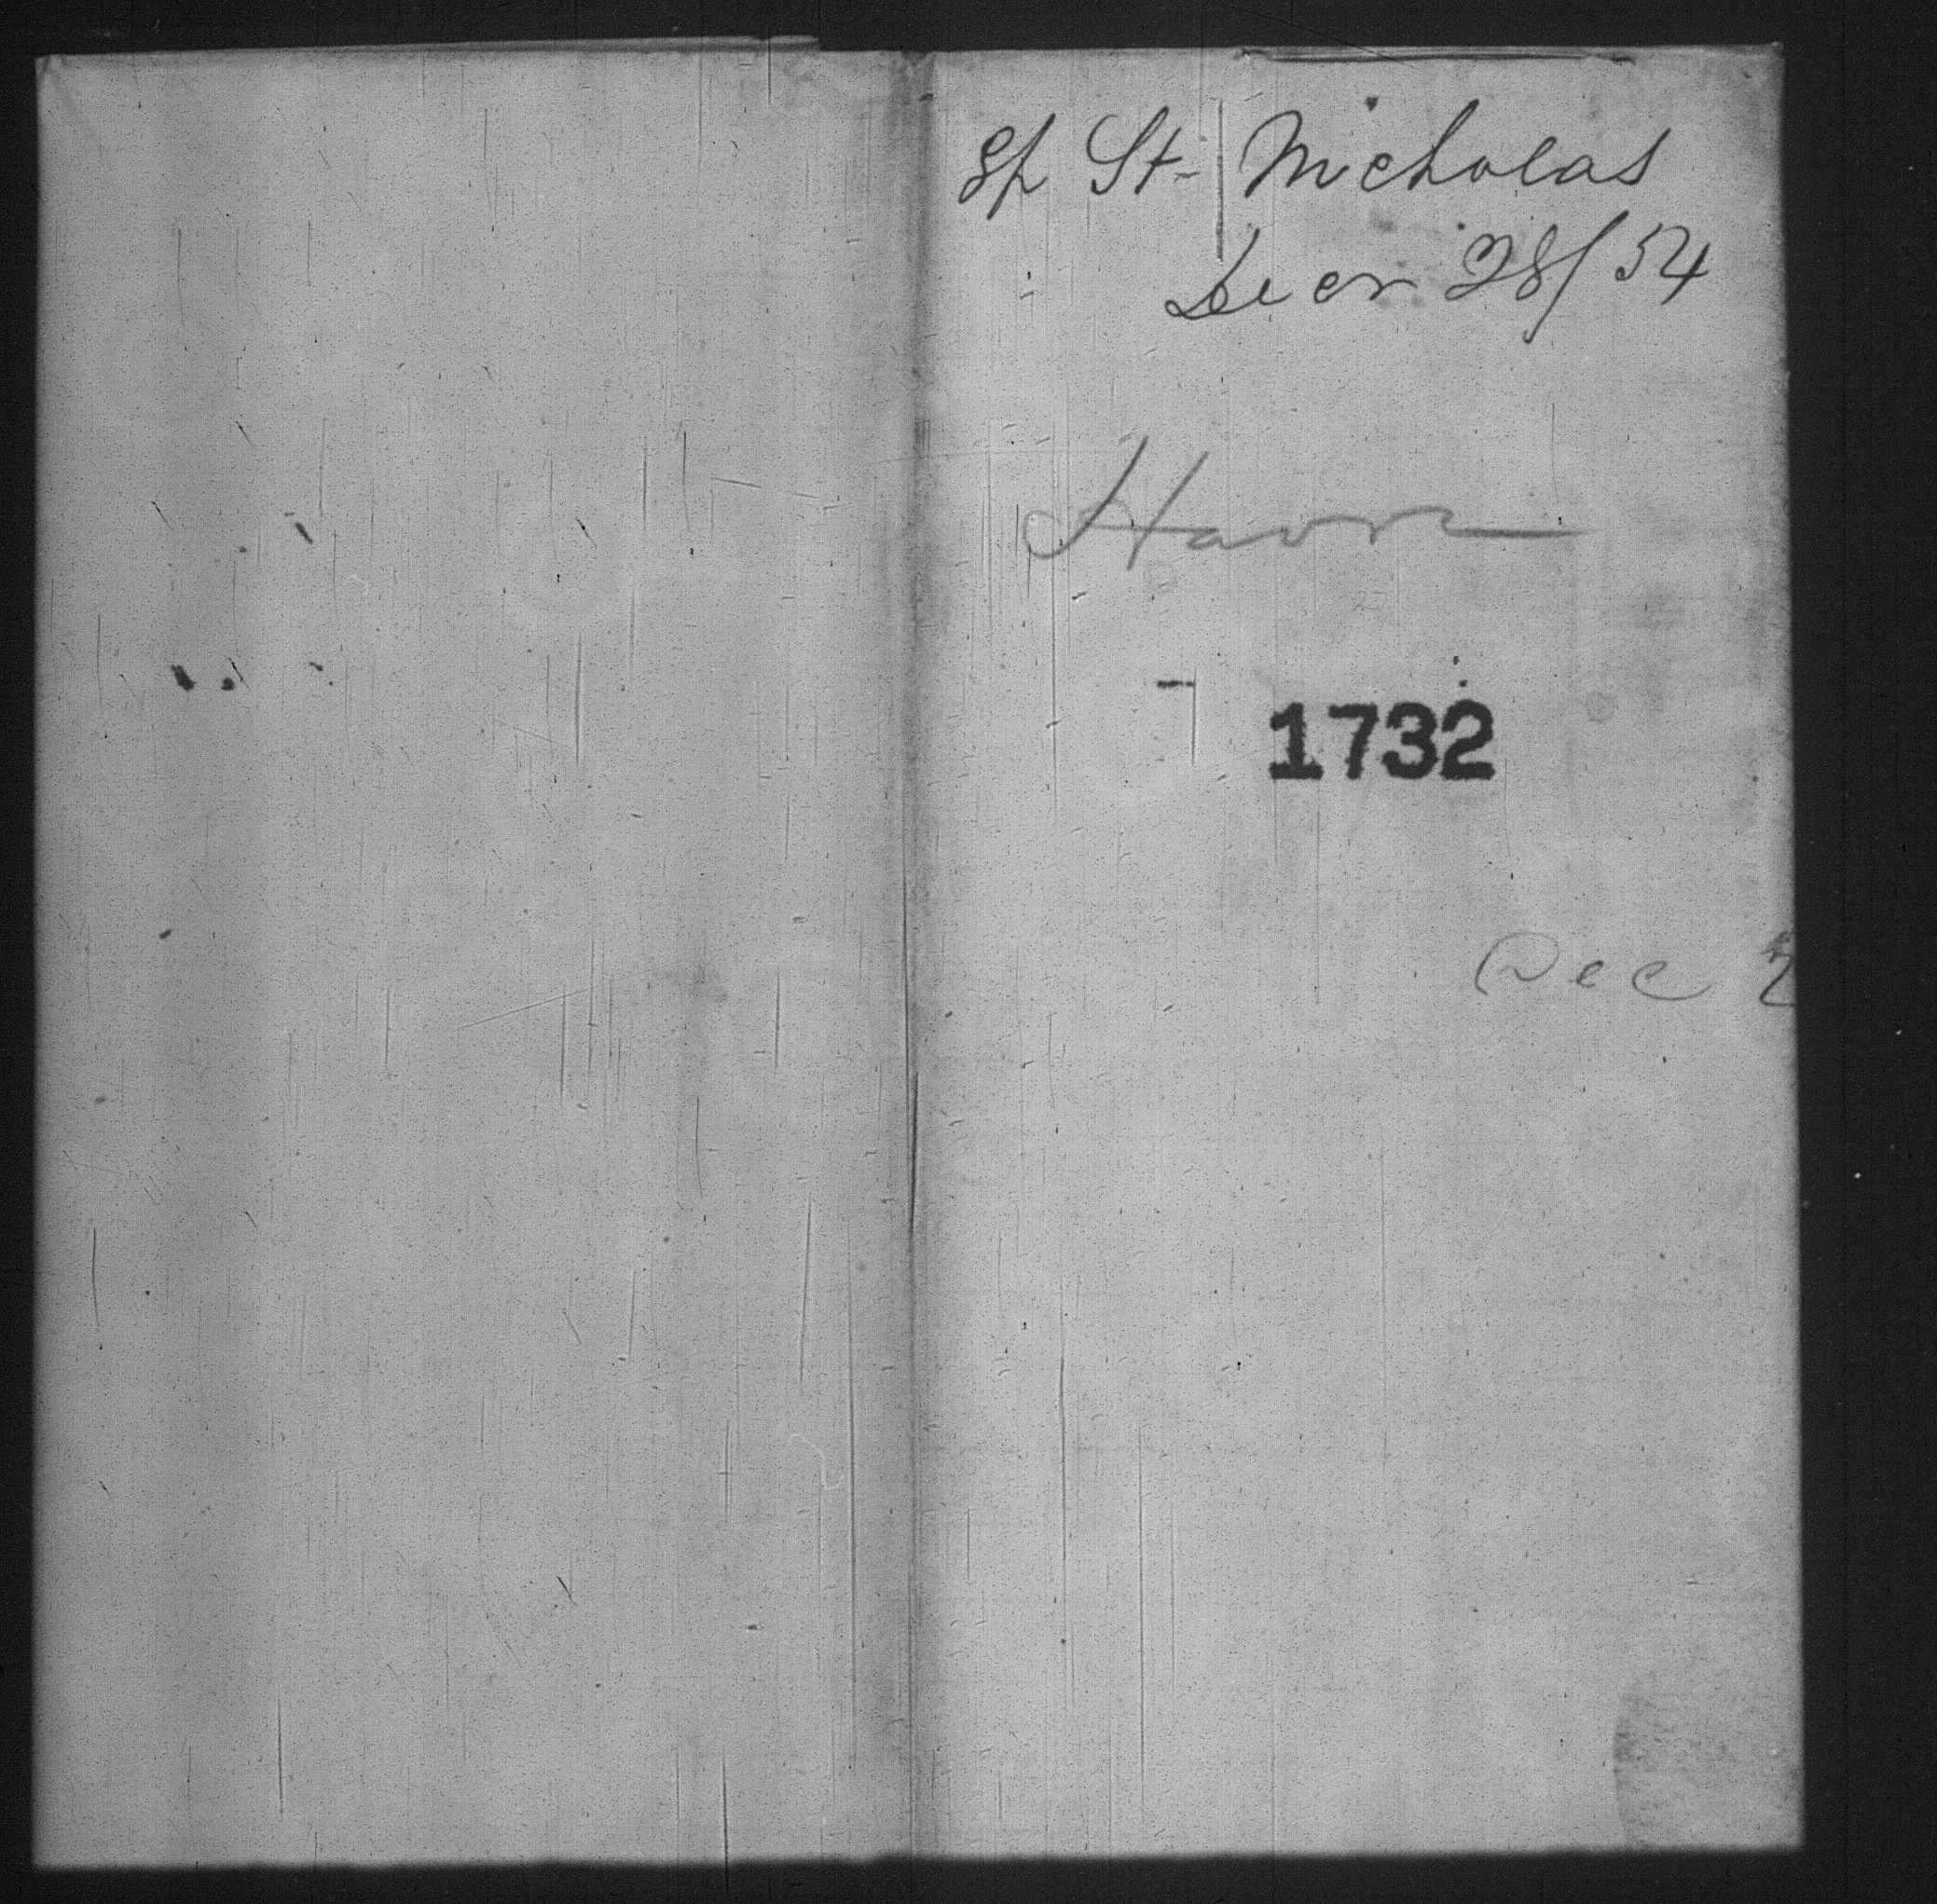 Sh St- Nicholas
Decr 28/54
Havre
1732
Dec 2